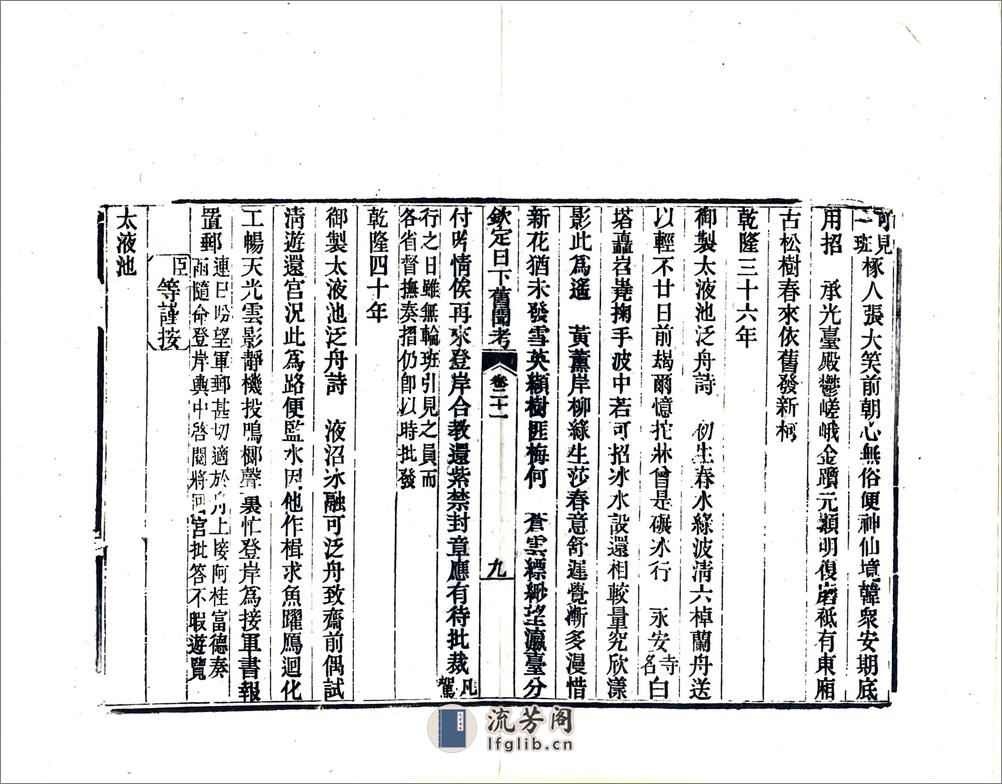 可見一班豚人張大笑前朝心無俗便神仙境韓衆安期底
用招　承光臺殿鬱嵯峨金躓元顛明復磨秪有東廂
古松樹春來依舊發新柯
乾隆三十六年
御製太液池泛舟詩　初生春水綠波清六棹蘭舟送
以輕不廿日前堨爾憶拕牀曾是碾冰行　永安寺名白
塔矗岧嶤掬手波中若可招冰水設還相較量究欣漾
影此為遙　黃薰岸柳綠生莎春意舒遲覺漸多漫惜
新花猶未發雪英纈樹匪梅何　蒼雲縹緲望瀛臺分
欽定日下舊聞考　卷二十一　九
付吟情候再來登岸合教還紫禁封章應有待批裁凡駕
行之日雖無輪班引見之員而
各省督撫奏摺仍卽以時批發
乾隆四十年
御製太液池泛舟詩　液沼冰融可泛舟致齋前偶試
清遊還宮況此為路便監水因他作楫求魚躍鳫迴化
工暢天光雲影靜機投鳴榔聲裏忙登岸為接軍書報
置郵連日盼望軍郵甚切適於舟上接阿桂富德奏
函隨命登岸輿中啓閱將回宮批答不暇遊覽
臣等謹按
太液池
流芳阁
lfglib.cn